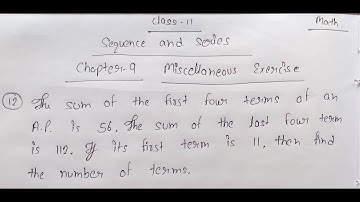 Class-11
Math
Sequence and Series
Chapter-9 Miscellaneous Exercise
(12) The sum of the first four terms of an
A.P. is 56. The sum of the last four term
is 112. If its first term is 11, then find
the number of terms.